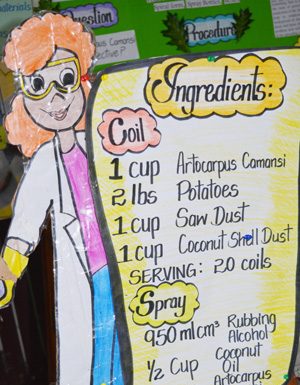 materials
Question
Procedure
Camansi
Ingredients:
Coil
1 cup Artocarpus Camansi
2 lbs Potatoes
1 cup Saw Dust
1 cup Coconut Shell Dust
SERVING: 20 coils
Spray
950 ml cm³ Rubbing Alcohol
1/2 Cup Coconut Oil
Artocarpus